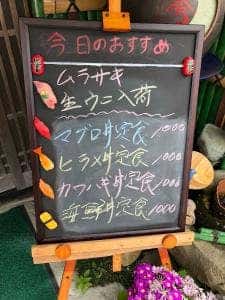 今日のおすすめ
ムラサキ
生ウニ入荷
マグロ丼定食 1000
ヒラメ丼定食 1000
カワハギ丼定食 1000
海鮮丼定食 1000